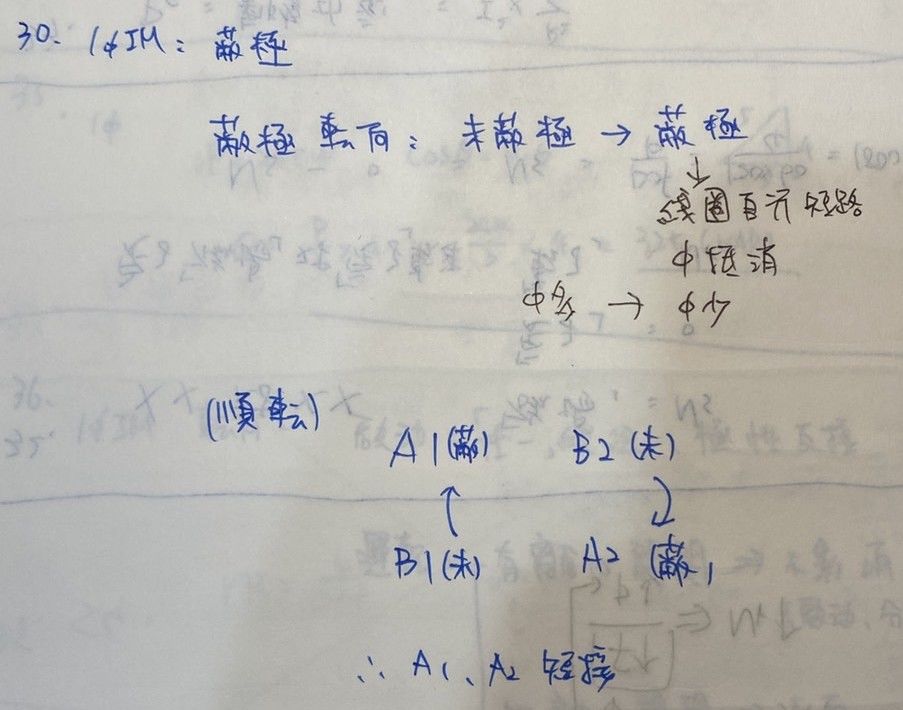 30. 1ϕIM: 蔽極
蔽極転向: 未蔽極 → 蔽極
↓
線圈自充短路
ϕ抵消
ϕ多 → ϕ少
(順転)
A1(蔽) B2(未)
↑ ↓
B1(未) A2(蔽)
∴ A1、A2 短接